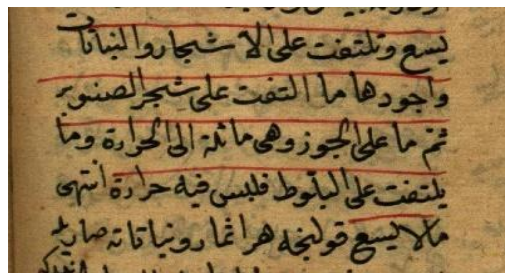 يسع وتلتفت على الاشجار والنباتات
واجودها ما التفت على شجر الصنوبر
ثم ما على الجوز وهى مائلة الى الحرارة وما
يلتفت على البلوط فليس فيه حرارة انتهى
مالا يسع قولنجه هر اثمار ونباتاته